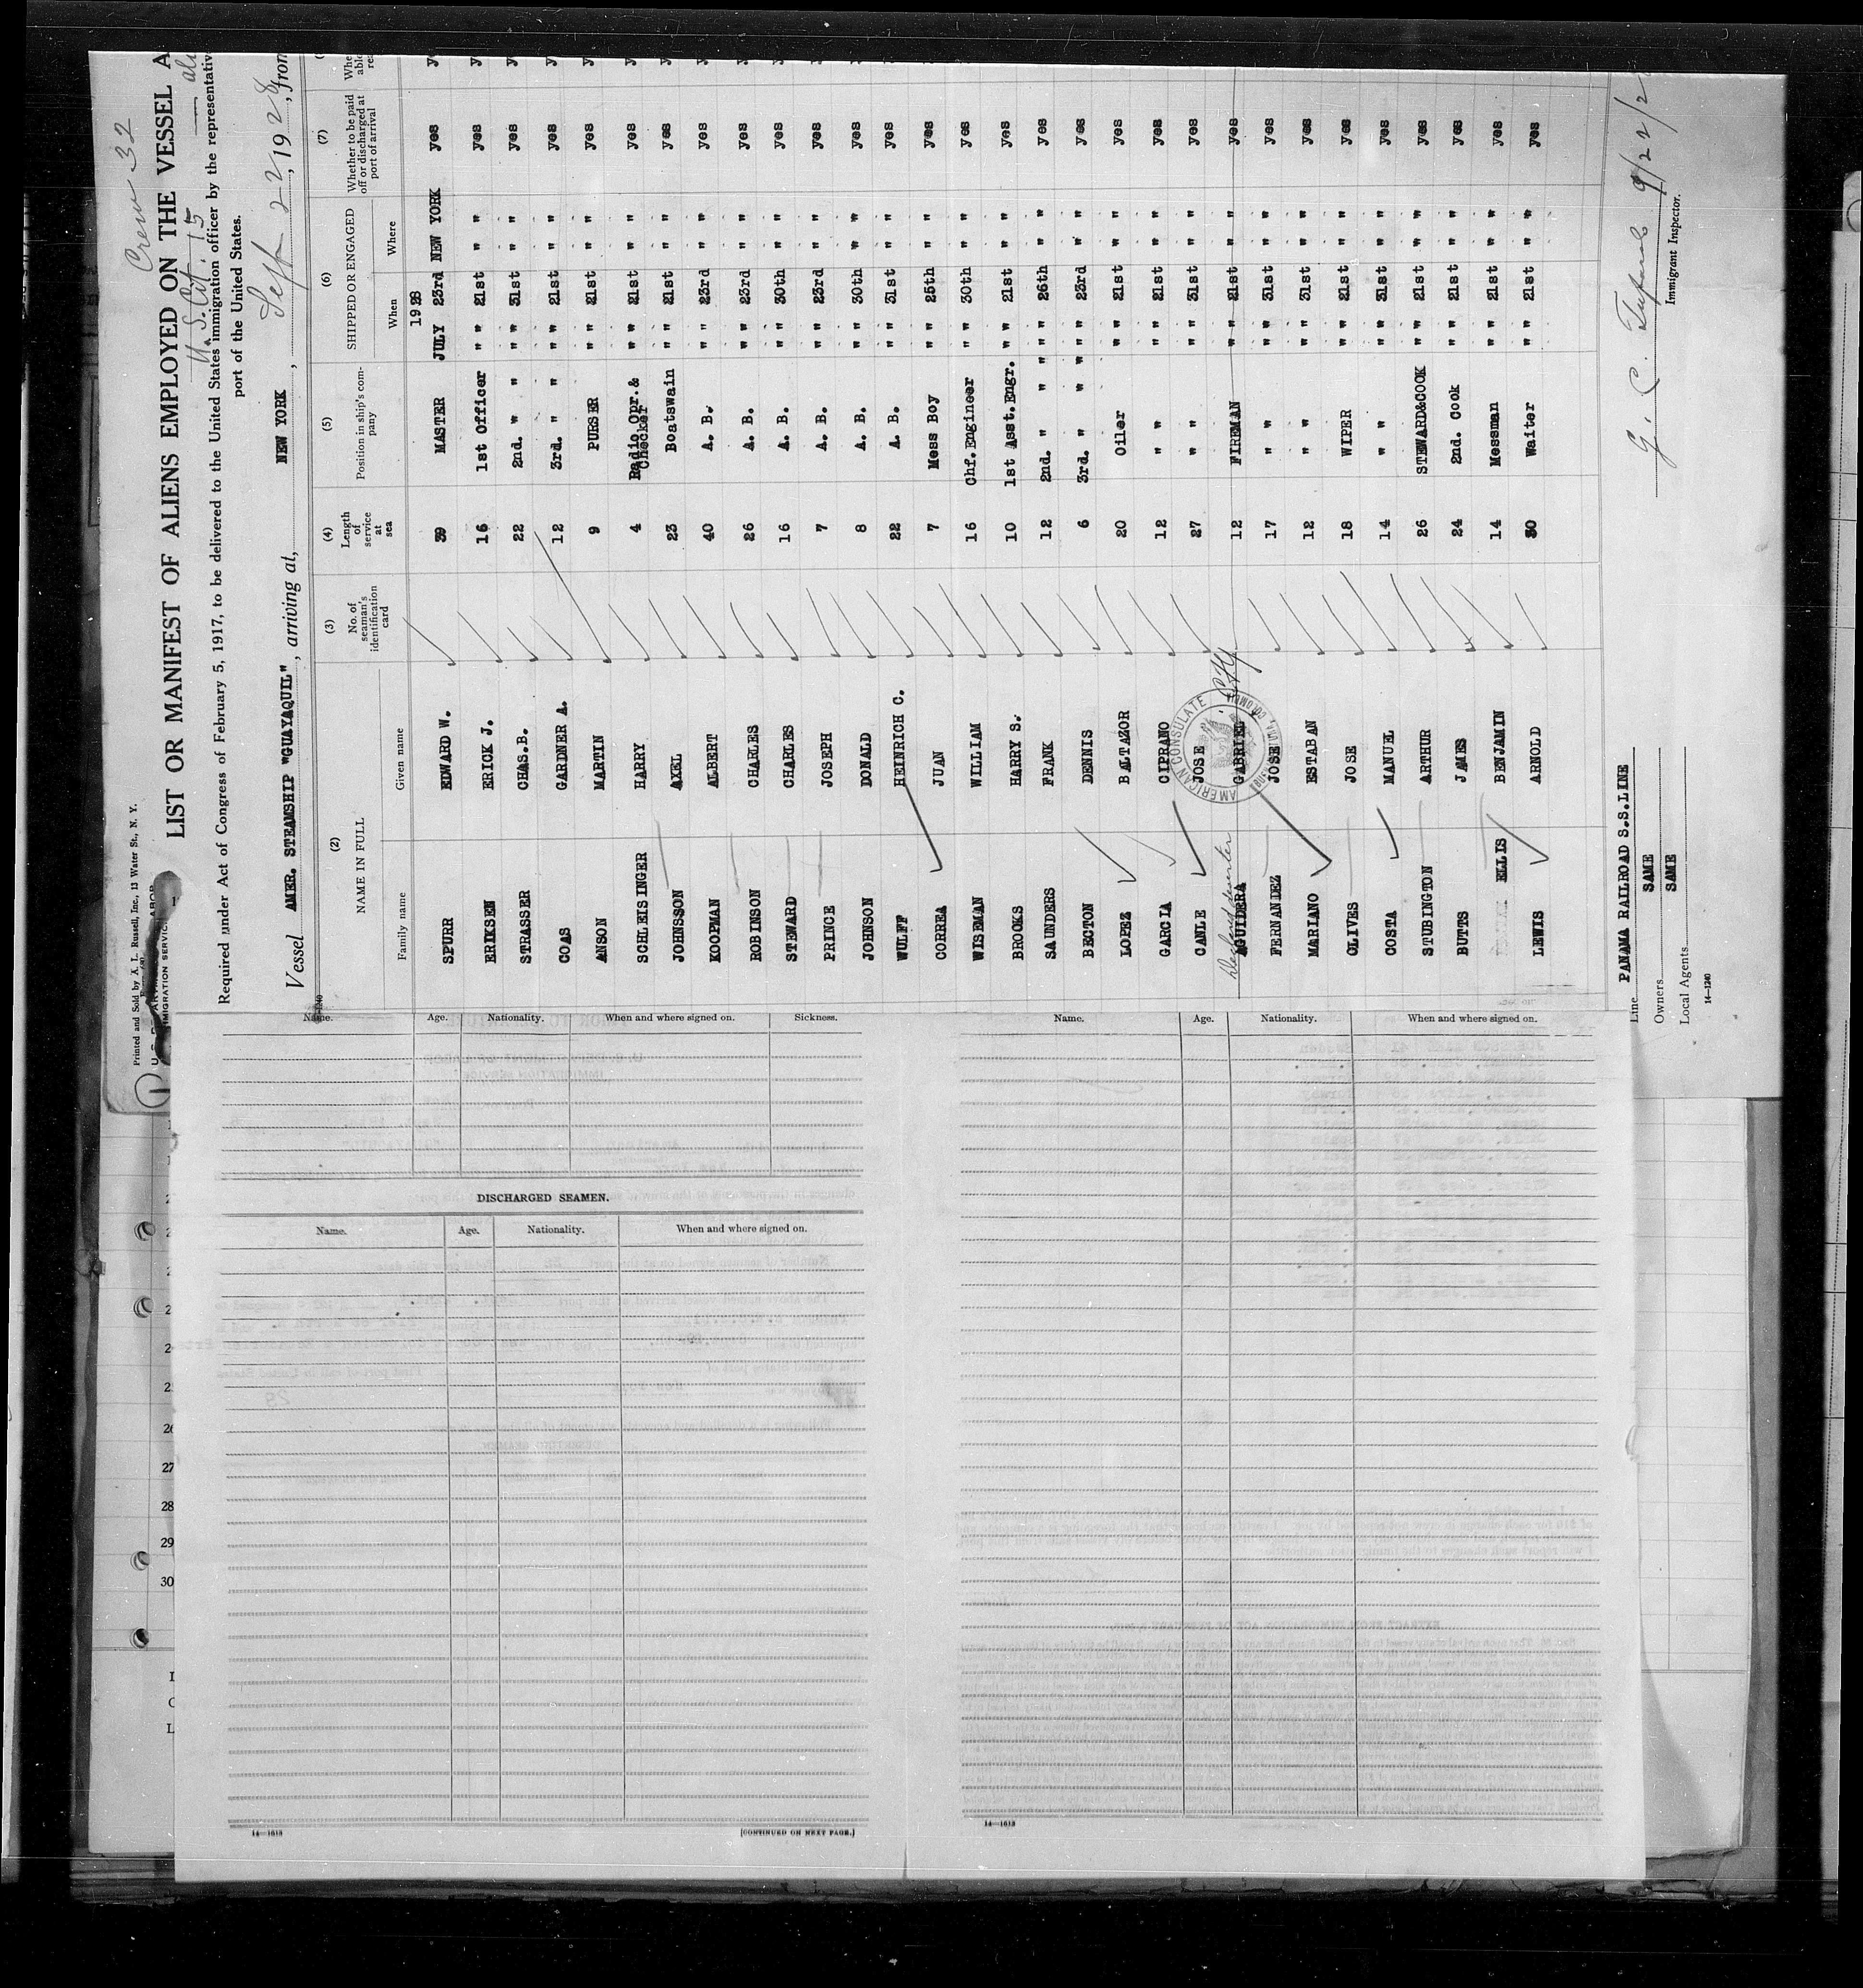 Crew 32
U.S. Cit. 15
Printed and Sold by A. L. Russell, Inc., 13 Water St., N. Y.
IMMIGRATION SERVICE
LIST OR MANIFEST OF ALIENS EMPLOYED ON THE VESSEL A
Required under Act of Congress of February 5, 1917, to be delivered to the United States immigration officer by the representativ
port of the United States.
Vessel AMER. STEAMSHIP "GUAYAQUIL", arriving at, NEW YORK, Sept 22, 1928, from
(2) (3) (4) (5) (6) (7)
NAME IN FULL No. of seaman's identification card Length of service at sea Position in ship's company SHIPPED OR ENGAGED Whether to be paid off or discharged at port of arrival
Family name Given name When Where
1928
SPURR EDWARD W. 39 MASTER JULY 23rd NEW YORK yes
ERIKSEN ERICK J. 16 1st Officer " " 21st " " yes
STRASSER CHAS.B. 22 2nd. " " " " 31st " " yes
COAS GARDNER A. 12 3rd. " " " " 21st " " yes
ANSON MARTIN 9 PURSER " " 21st " " yes
SCHLEISINGER HARRY 4 Radio Opr.& Checker " " 21st " " yes
JOHNSSON AXEL 23 Boatswain " " 21st " " yes
KOOPMAN ALBERT 40 A. B. " " 23rd " " yes
ROBINSON CHARLES 26 A. B. " " 23rd " " yes
STEWARD CHARLES 16 A. B. " " 30th " " yes
PRINCE JOSEPH 7 A. B. " " 23rd " " yes
JOHNSON DONALD 8 A. B. " " 30th " " yes
WULFF HEINRICH C. 22 A. B. " " 31st " " yes
CORREA JUAN 7 Mess Boy " " 25th " " yes
WISEMAN WILLIAM 16 Chf. Engineer " " 30th " " yes
BROOKS HARRY S. 10 1st Asst. Engr. " " 21st " " yes
SAUNDERS FRANK 12 2nd. " " " " " 26th " " yes
BECTON DENNIS 6 3rd. " " " " " 23rd " " yes
LOPEZ BALTAZOR 20 Oiler " " 21st " " yes
GARCIA CIPRANO 12 " " " " 21st " " yes
CANLE JOSE 27 " " " " 31st " " yes
Declared deserter
AGUIDERA GABRIEL 12 FIREMAN " " 21st " " yes
FERNANDEZ JOSE 17 " " " " 31st " " yes
MARIANO ESTABAN 12 " " " " 31st " " yes
OLIVES JOSE 18 WIPER " " 21st " " yes
COSTA MANUEL 14 " " " " 31st " " yes
STUBINGTON ARTHUR 26 STEWARD&COOK " " 21st " " yes
BUTTS JAMES 24 2nd. Cook " " 21st " " yes
ELLIS BENJAMIN 14 Messman " " 21st " " yes
LEWIS ARNOLD 30 Waiter " " 21st " " yes
AMERICAN CONSULATE
Line PANAMA RAILROAD S.S.LINE
Owners SAME
Local Agents SAME
14—1240
9/22/2
Immigrant Inspector.
Name. Age. Nationality. When and where signed on. Sickness.
DISCHARGED SEAMEN.
Name. Age. Nationality. When and where signed on.
14—1613
[CONTINUED ON NEXT PAGE.]
Name. Age. Nationality. When and where signed on.
14—1613
26
27
28
29
30